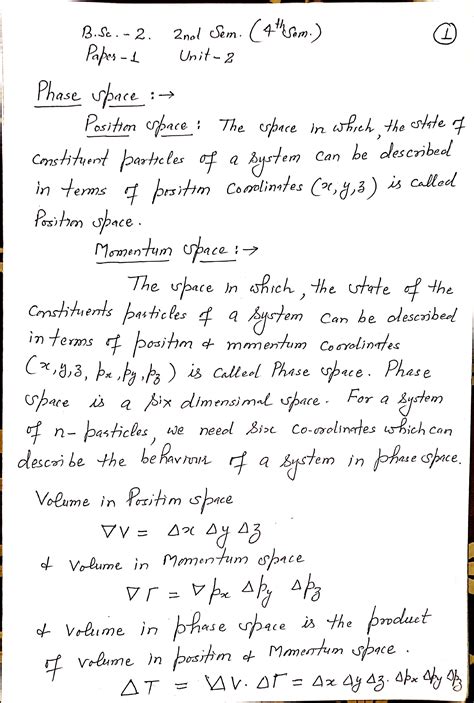 B.Sc. - 2. 2nd Sem. (4th Sem.)
1
Paper - 1 Unit - 2
Phase space :→
Position space : The space in which, the state of
constituent particles of a system can be described
in terms of position coordinates (x, y, z) is called
Position space.
Momentum space :→
The space in which, the state of the
constituents particles of a system can be described
in terms of position & momentum coordinates
(x, y, z, px, py, pz) is called Phase space. Phase
space is a six dimensional space. For a system
of n- particles, we need six co-ordinates which can
describe the behaviour of a system in phase space.
Volume in Position space
∇V = Δx Δy Δz
& Volume in Momentum space
∇Γ = ∇px Δpy Δpz
& Volume in phase space is the product
of volume in position & Momentum space.
ΔT = ∇V. ΔΓ = Δx Δy Δz. Δpx Δpy Δpz